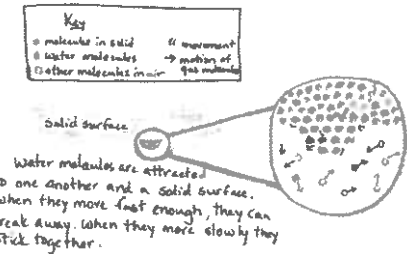 Key
molecules in solid
water molecules
other molecules in air
movement
→ motion of
gas molecules
solid surface
Water molecules are attracted
o one another and a solid surface.
when they more fast enough, they can
reak away. When they more slowly they
stick together.